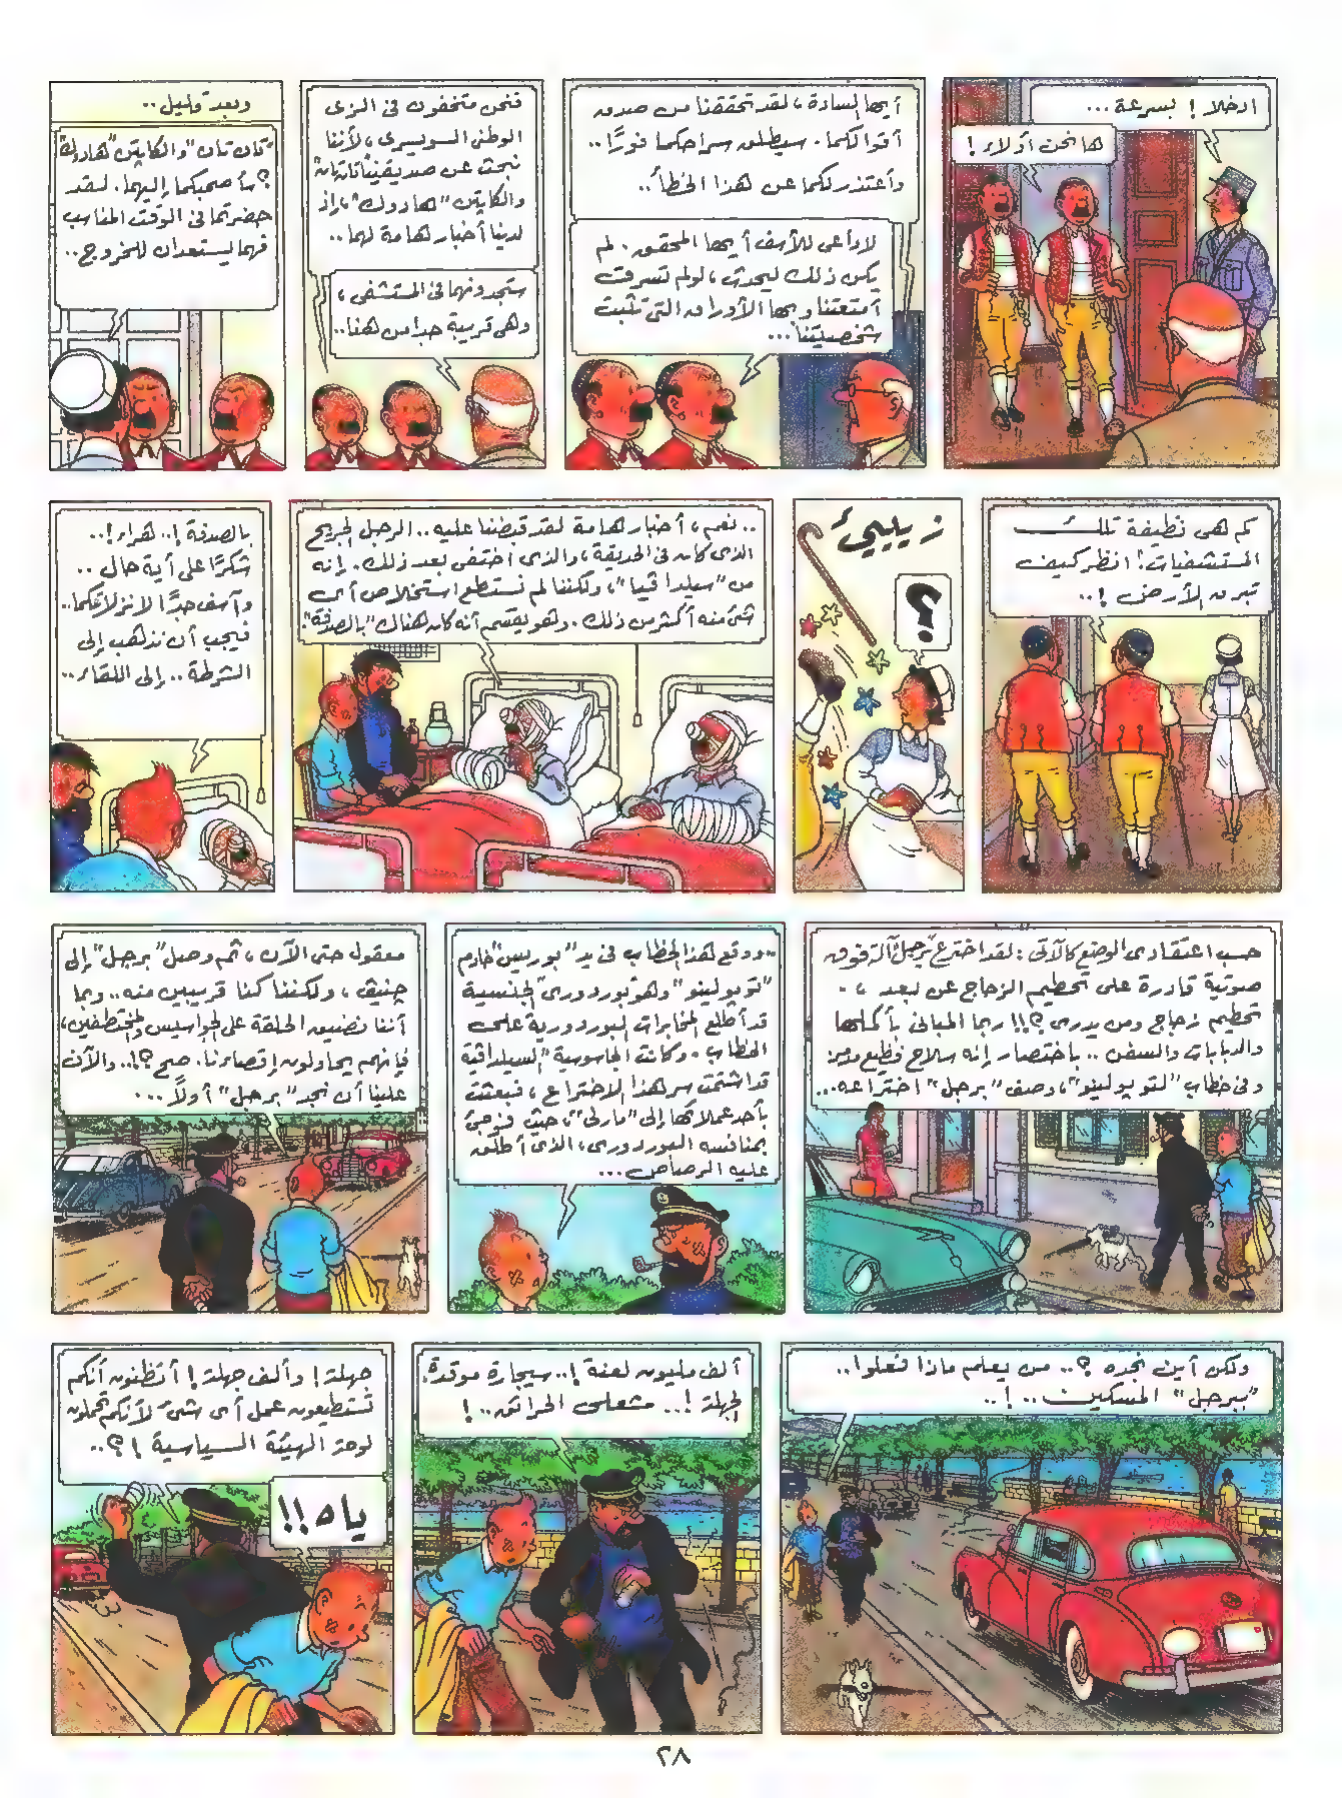 ادخلا ! بسرعة ...
ها نحن أولاء !
أيها السادة ، لقد تحققنا من صدق
أقوالكما . سيطلق سراحكما فورًا ..
وأعتذر لكما عن هذا الخطأ ..
لا داعى للأسف أيها المحقق . لم
يكن ذلك ليحدث ، لو لم تسرق
أمتعتنا وبها الأوراق التى تثبت
شخصيتنا ...
فنحن متخفون فى الزى
الوطنى السويسرى ، لأننا
نبحث عن صديقينا تان تان
والكابتن "هادوك" ، إذ
لدينا أخبار هامة لهما ..
ستجدونهما فى المستشفى ،
وهى قريبة جدا من هنا ..
وبعد قليل ..
"تان تان" والكابتن "هادوك"
؟ سأصحبكما إليهما . لقد
حضرتما فى الوقت المناسب
فهما يستعدان للخروج ..
كم هى نظيفة تلك
المستشفيات ! انظر كيف
تبرق الأرض ! ..
زيييئ
؟
.. نعم ، أخبار هامة لقد قبضنا عليه .. الرجل الجريح
الذى كان فى الحديقة ، والذى اختفى بعد ذلك . إنه
من "سيلداڤيا" ، ولكننا لم نستطع استخلاص أى
شئ منه أكثر من ذلك . وهو يقسم أنه كان هناك "بالصدفة"
بالصدفة ! .. هراء ! ..
شكرًا على أية حال ..
وآسف جدًا لانزلاقكما ..
فيجب أن نذهب إلى
الشرطة .. إلى اللقاء ..
حسب اعتقادى الوضع كالآتى : لقد اخترع برجل آلة فوق
صوتية قادرة على تحطيم الزجاج عن بعد ، -
تحطيم زجاج ومن يدرى ؟ !! ربما المبانى بأكملها
والدبابات والسفن .. باختصار إنه سلاح فظيع مدمر
وفى خطاب "لتوبولينو" ، وصف "برجل" اختراعه ..
.. ووقع هذا الخطاب فى يد "بوريس" خادم
"توبولينو" وهو بوردورى الجنسية
قد أطلع المخابرات البوردورية على
الخطاب . وكانت الجاسوسية السيلداڤية
قد اشتمت سر هذا الاختراع ، فبعثت
بأحد عملائها إلى "مارلى" ، حيث فوجئ
بمنافسه البوردورى ، الذى أطلق
عليه الرصاص ...
معقول حتى الآن ، ثم وصل "برجل" إلى
چنيڤ ، ولكننا كنا قريبين منه .. وبما
أننا نضيق الحلقة على الجواسيس والمختطفين ،
فإنهم يحاولون إقصاءنا . صح ؟ ! .. والآن
علينا أن نجد "برجل" أولاً ...
ولكن أين نجده ؟ .. من يعلم ماذا فعلوا ..
"ببرجل" المسكين .. ! ..
ألف مليون لعنة ! .. سيجارة موقدة
لجهلة ! .. مشعلى الحرائق .. !
جهلة ! وألف جهلة ! أتظنون أنكم
تستطيعون عمل أى شئ لأنكم تحملون
لوحة الهيئة السياسية ! ؟ ..
ياه !!
٢٨